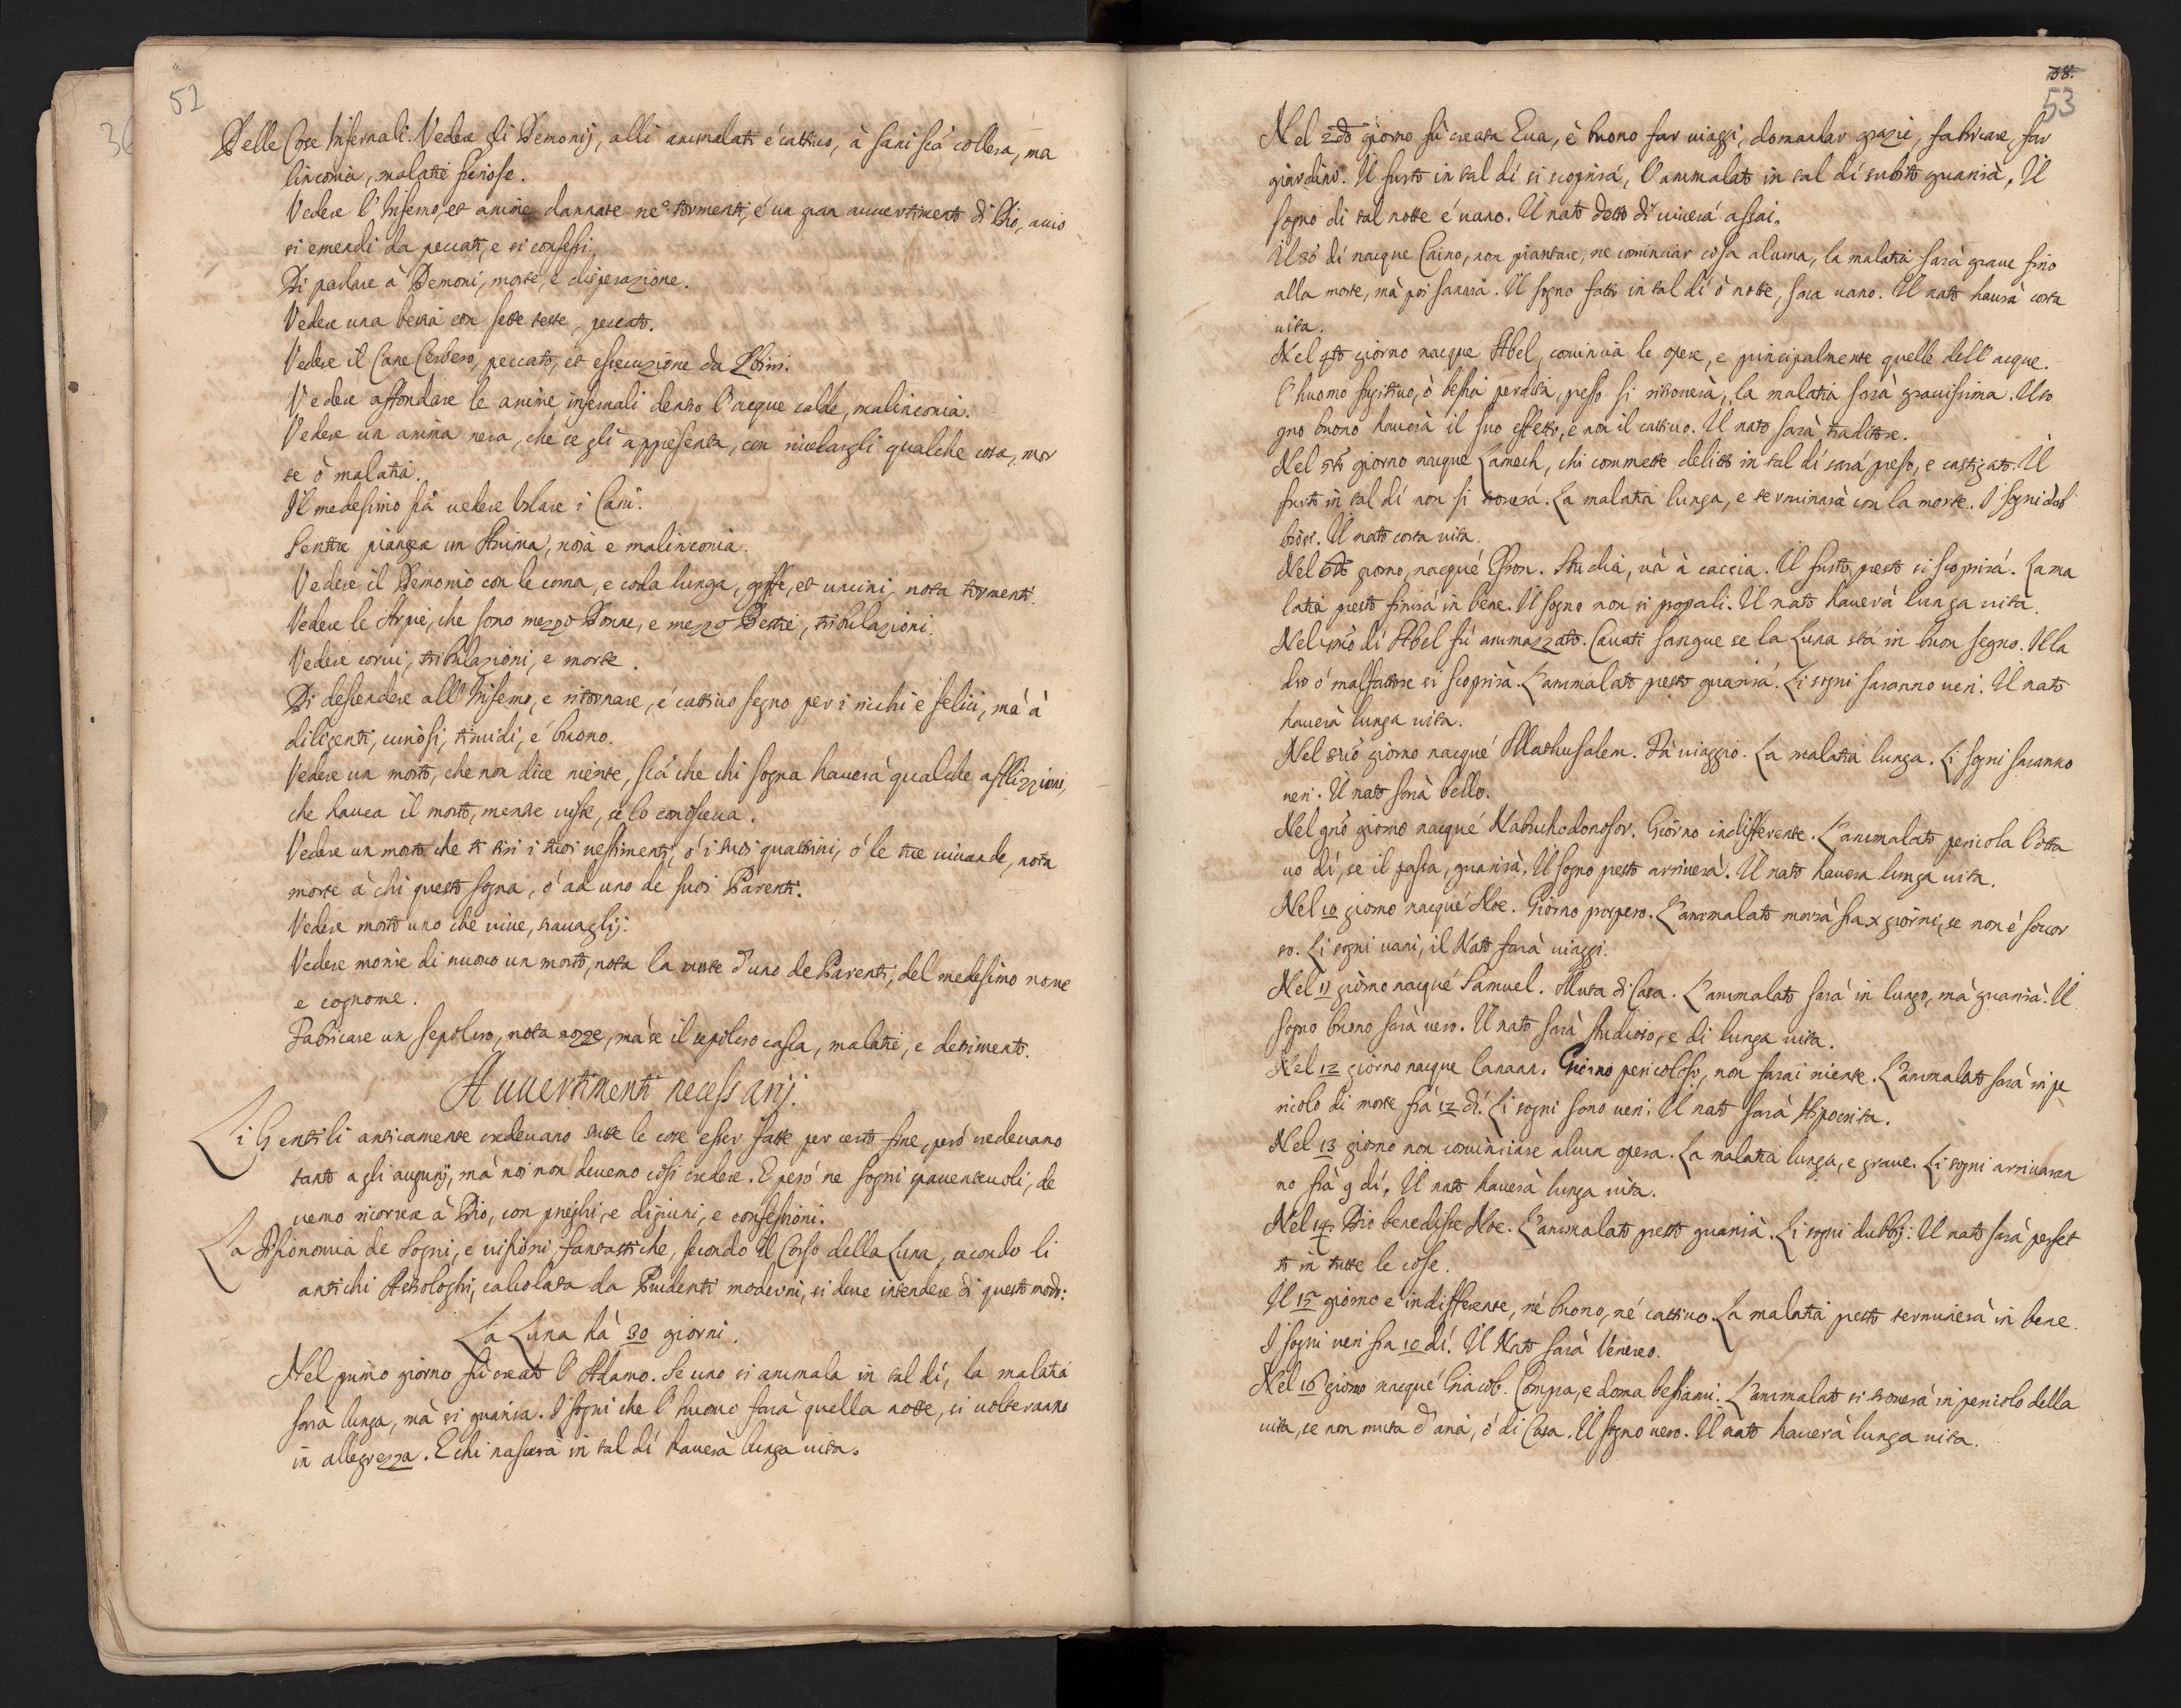 52
Delle Cose Infernali. Vedere gli Demonij, alli ammalati é cattivo, à sani sià collera, ma
linconia, malatie furiose.
Vedere l'Inferno, et anime dannate ne tormenti, é un gran auuertimento di Dio, acciò
si emendi da peccati, e si confessi.
Di parlare à Demoni, morte, e disperazione.
Vedere una bestia con sette teste, peccato.
Vedere il Cane Cerbero, peccato, et essecuzione da Sbirri.
Vedere affondare le anime infernali dentro l'acque calde, malinconia.
Vedere un anima nera, che se gli appresenta, con rivelargli qualche cosa, mor
te ò malatia.
Il medesimo fià vedere urlare i Cani.
Sentire piangere un Anima, noia e malinconia.
Vedere il Demonio con le corna, e coda lunga, griffe, et uncini, nota tormenti.
Vedere le Arpie, che sono mezzo Donne, e mezzo Bestie, tribulazioni.
Vedere corui, tribulazioni, e morte.
Di descendere all'Inferno, e ritornare, é cattiuo segno per i ricchi e felici, mà à
diligenti, curiosi, timidi, é buono.
Vedere un morto, che non dice niente, sià che chi sogna hauerà qualche afflizzioni,
che hauea il morto, mentre uisse, se lo conosceua.
Vedere un morto che ti tiri i tuoi uestimenti, ó i tuoi quattrini, ó le tue uiuande, nota
morte à chi questo sogna, ó ad uno de suoi Parenti.
Vedere morto uno che uiue, trauaglij.
Vedere morire di nuouo un morto, nota la morte d'uno de Parenti, del medesimo nome
e cognome.
Fabricare un sepolcro, nota nozze, mà se il sepolcro casca, malatie, e detrimento.
Auuertimenti necessarij.
Li Gentili anticamente credeuano tutte le cose esser fatte per certo fine, peró credeuano
tanto agli augurij, mà noi non deuemo cosi credere. E peró ne sogni spauenteuoli, de
uemo ricorrere à Dio, con preghi, e digiuni, e confessioni.
La Fisionomia de Sogni, e uisioni fantastiche, secondo il Corso della Luna, secondo li
antichi Astrologhi, calcolata da Prudenti moderni, si deue intendere di questo modo:
La Luna hà 30 giorni.
Nel primo giorno fù creato l'Adamo. Se uno si ammala in tal dí, la malatia
sarà lunga, mà si guarirà. I sogni che l'huomo farà quella notte, si uolteranno
in allegrezza. E chi nascerà in tal dí hauerà lunga uita.
38.
53
Nel 2do giorno fù creata Eua, è buono far uiaggi, domandar grazie, fabricare, far
giardini. Il furto in tal dí si scoprirá, l'ammalato in tal dí subito guarirà, Il
sogno di tal notte é uano. Il nato detto dí uiuerá assai.
Il 3o dí nacque Caino, non piantare, ne cominciar cosa alcuna, la malatia sarà graue fino
alla morte, mà poi sanarà. Il sogno fatto in tal dí ò notte, sara uano. Il nato hauerà corta
uita.
Nel 4to giorno nacque Abel, comincia le opere, e principalmente quelle dell'acque.
l'huomo fugitiuo, ò bestia perduta, presto si ritrouerà, la malatia sarà grauissima. Il so
gno buono hauerà il suo effetto, e non il cattiuo. Il nato sarà traditore.
Nel 5to giorno nacque Lamech, chi commette delitto in tal dí sará preso, e castigato. Il
furto in tal dí non si trouerá. La malatia lunga, e terminarà con la morte. I sogni dub
biosi. Il nato corta uita.
Nel 6to giorno, nacqué Ebron. Studia, và à caccia. Il furto presto si scoprirá. La ma
latia presto finirà in bene. Il sogno non si propali. Il nato hauerà lunga uita.
Nel 7mo dí Abel fù ammazzato. Cauati sangue se la Luna stá in buon segno. Il la
dro ó malfattore si scoprirà. L'ammalato presto guarirá. Li sogni saranno ueri. Il nato
hauerà lunga uita.
Nel 8uo giorno nacqué Mathusalem. Fà uiaggio. La malatia lunga. Li sogni saranno
ueri. Il nato sarà bello.
Nel 9no giorno nacqué Nabuchodonosor. Giorno indifferente. L'ammalato pericola l'otta
uo dí, se il passa, guarirà. Il sogno presto arriuerà. Il nato hauera lunga uita.
Nel 10 giorno nacqué Noe. Giorno prospero. L'ammalato morrà fra x giorni, se non è soccor
so. Li sogni uani, il Nato farà uiaggi.
Nel 11 giorno nacqué Samuel. Muta di Casa. L'ammalato sarà in lungo, mà guarirà. Il
sogno buono sarà uero. Il nato sarà studioso, e di lunga uita.
Nel 12 giorno nacque Canaan. Giorno pericoloso, non farai niente. L'ammalato sarà in pe
ricolo di morte frà 12 dí. Li sogni sono ueri. Il nato sarà Hipocrita.
Nel 13 giorno non cominciare alcun opera. La malatia lunga, e graue. Li sogni arriuaran
no frà 9 dí. Il nato hauerà lunga uita.
Nel 14 Dio benedisse Noe. L'ammalato presto guarirà. Li sogni dubbij. Il nato sarà perfet
to in tutte le cose.
Il 15 giorno e indifferente, né buono, né cattiuo. La malatia presto terminerà in bene.
I sogni ueri fra 10 dí. Il Nato sarà Venereo.
Nel 16 giorno nacqué Giacob. Compra, e doma bestiami. L'ammalato si trouerà in pericolo della
uita, se non muta d'aria, ó di Casa. Il sogno uero. Il nato hauerà lunga uita.